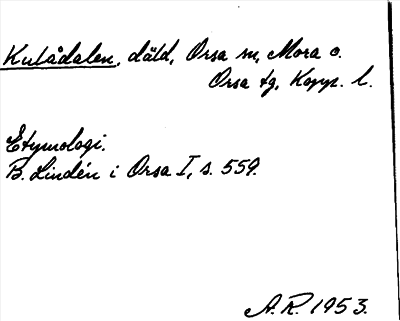 Kulådalen, däld, Orsa sn, Mora o.
Orsa tg, Kopp. l.
Etymologi.
B. Lindén i Orsa I, s. 559.
A.R. 1953.